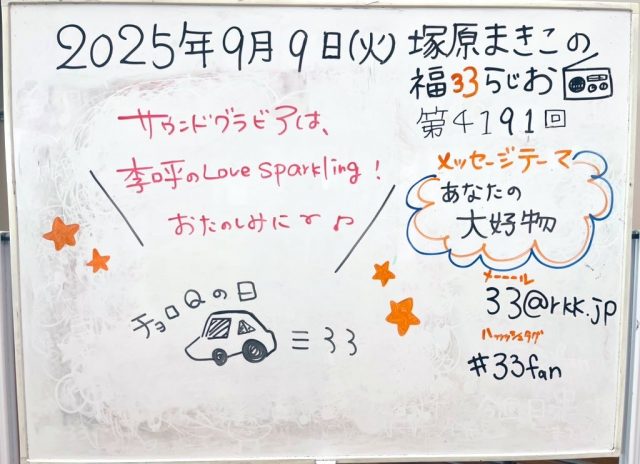 2025年9月9日(火) 塚原まきこの
福33らじお
第4191回
サウンドグラビアは、
李呼のLove Sparkling!
おたのしみに〜♪
メッセージテーマ
あなたの
大好物
メーール
33@rkk.jp
ハッシュタグ
#33fan
チョロQの日
三33